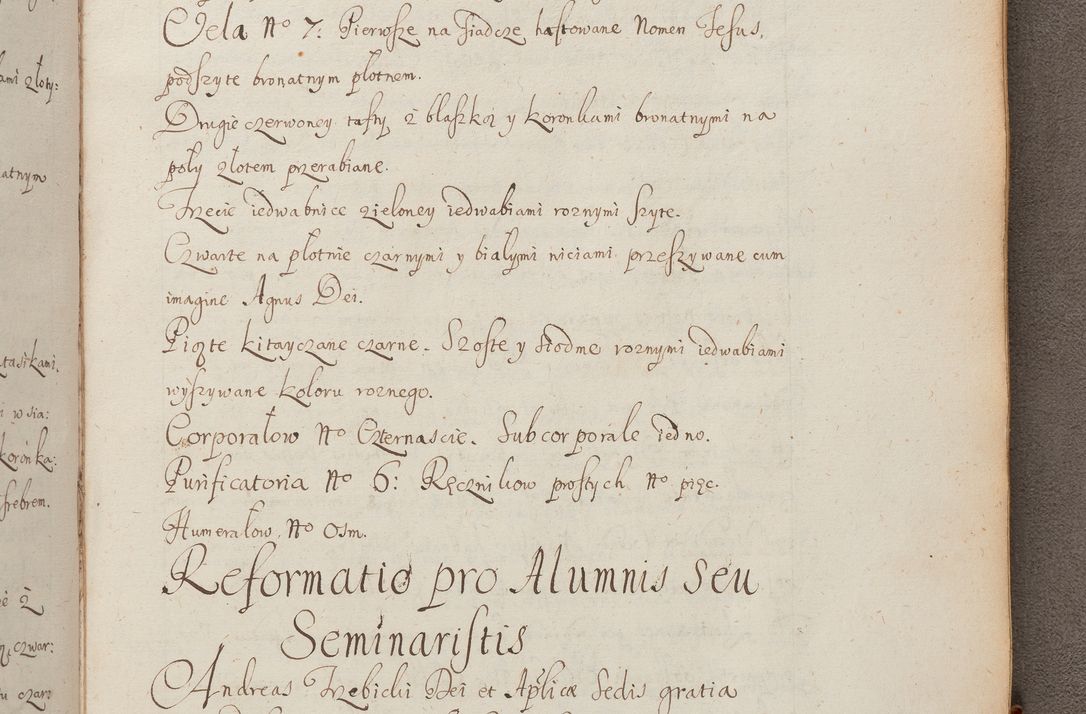 ami złoty:
atnym
tasikami.
i w sia:
koronka:
srebrem.
czwar:
u czar
Vela No 7: Pierwsze na Siadcze haftowane Nomen Jesus,
podszyte bronatnym płotnem.
Drugie czerwoney tafty z blaszką y koronkami bronatnymi na
poły złotem przerabiane.
Trzecie iedwabnice zieloney iedwabiami roznymi szyte.
Czwarte na płotnie czarnymi y białymi niciami przeszywane cum
imagine Agnus Dei.
Piąte kitayczane czarne. Szoste y siodme roznymi iedwabiami
wyszywane koloru roznego.
Corporałow No Czternascie. Subcorporale iedno.
Purificatoria No 6: Ręcznikow prostych No pięc.
Humerałow No Osm.
Reformatio pro Alumnis seu
Seminaristis
Andreas Trzebicki Dei et Aplicæ Sedis gratia